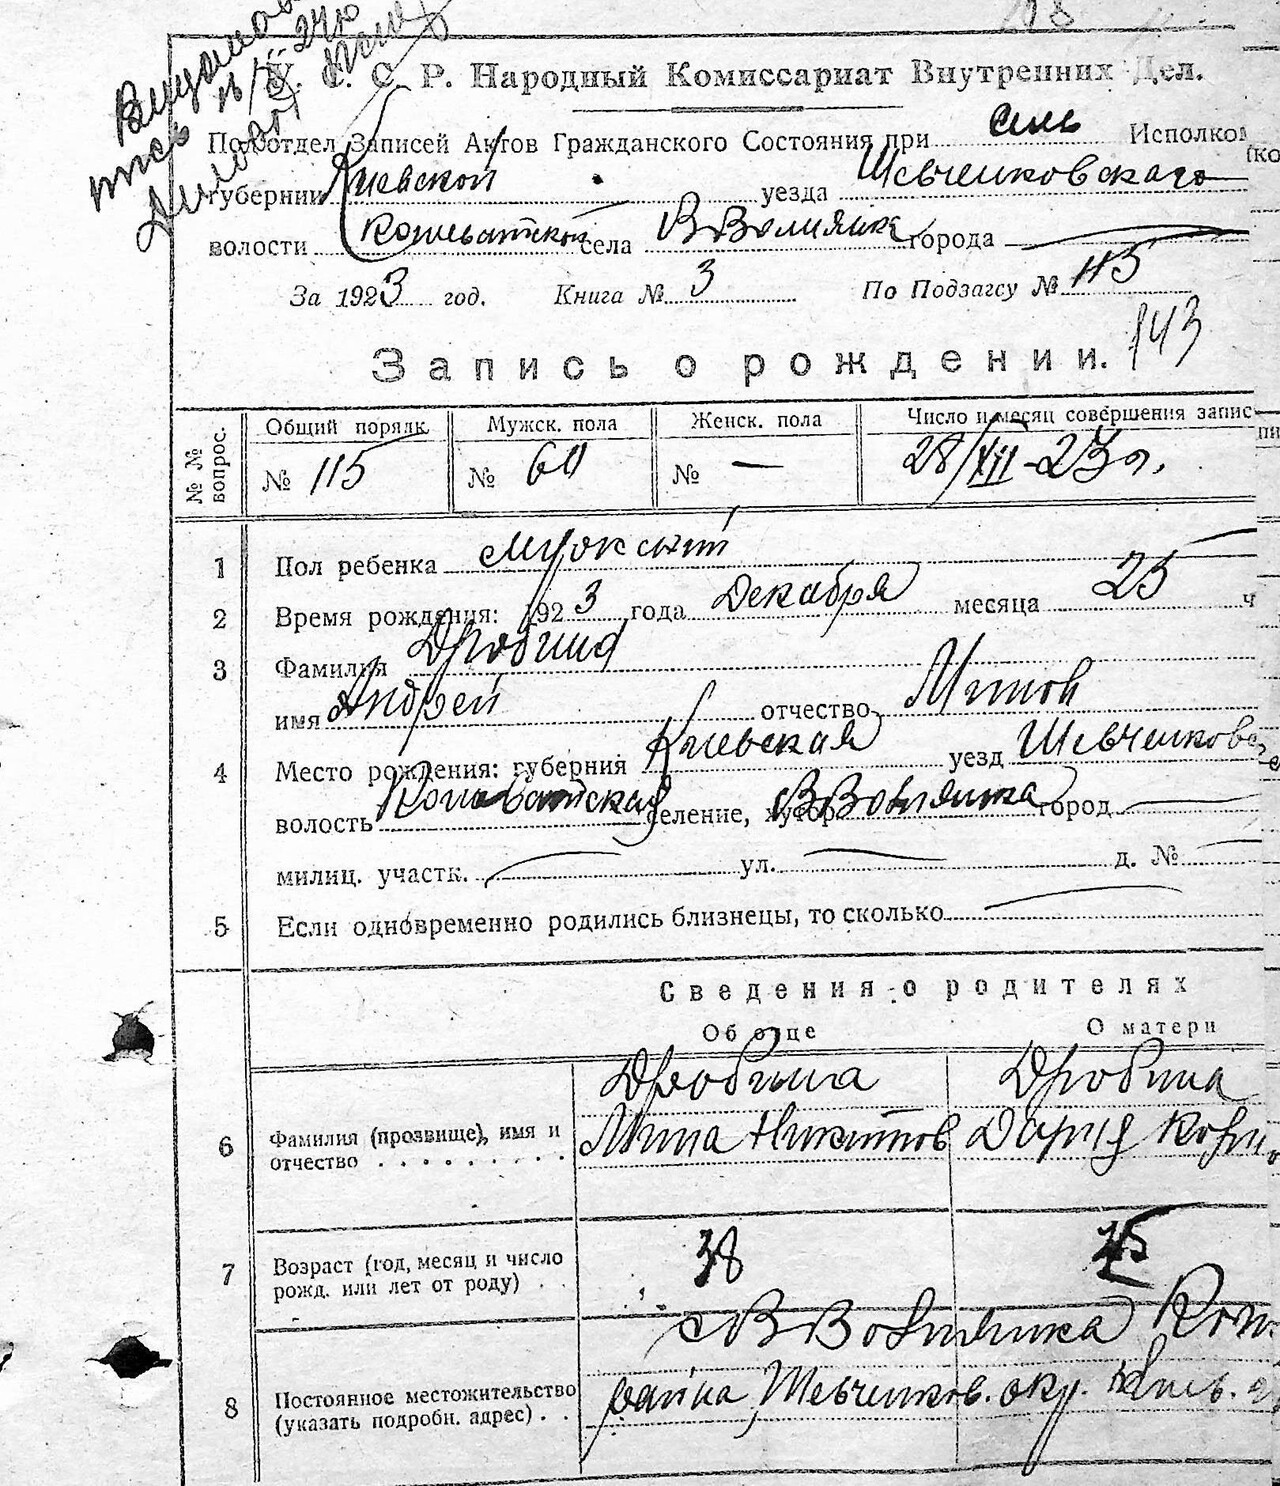 У. С. С. Р. Народный Комиссариат Внутренних Дел.
Подотдел Записей Актов Гражданского Состояния при Сель Исполком
губернии Киевской уезда Шевченковского
волости села города
За 1923 год. Книга № 3 По Подзагсу № 115
143
Запись о рождении.
№ № вопрос.
Общий порядк. Мужск. пола Женск. пола Число и месяц совершения запис
№ 115 № 60 № — 28/XII-23 г.
1 Пол ребенка мужский
2 Время рождения: 1923 года Декабря месяца 25 ч
3 Фамилия Дробина
имя Андрей отчество Минов
4 Место рождения: губерния Киевская уезд Шевченковс
волость селение, хутор В Вовнянка город —
милиц. участк. — ул. — д. № —
5 Если одновременно родились близнецы, то сколько —
Сведения о родителях
Об отце О матери
Дробина Дробина
6 Фамилия (прозвище), имя и Мина Никитов Дария Корн
отчество
7 Возраст (год, месяц и число 38 25
рожд. или лет от роду)
с В Вовнянка
8 Постоянное местожительство района Шевченков. окр. Киев.
(указать подробн. адрес)